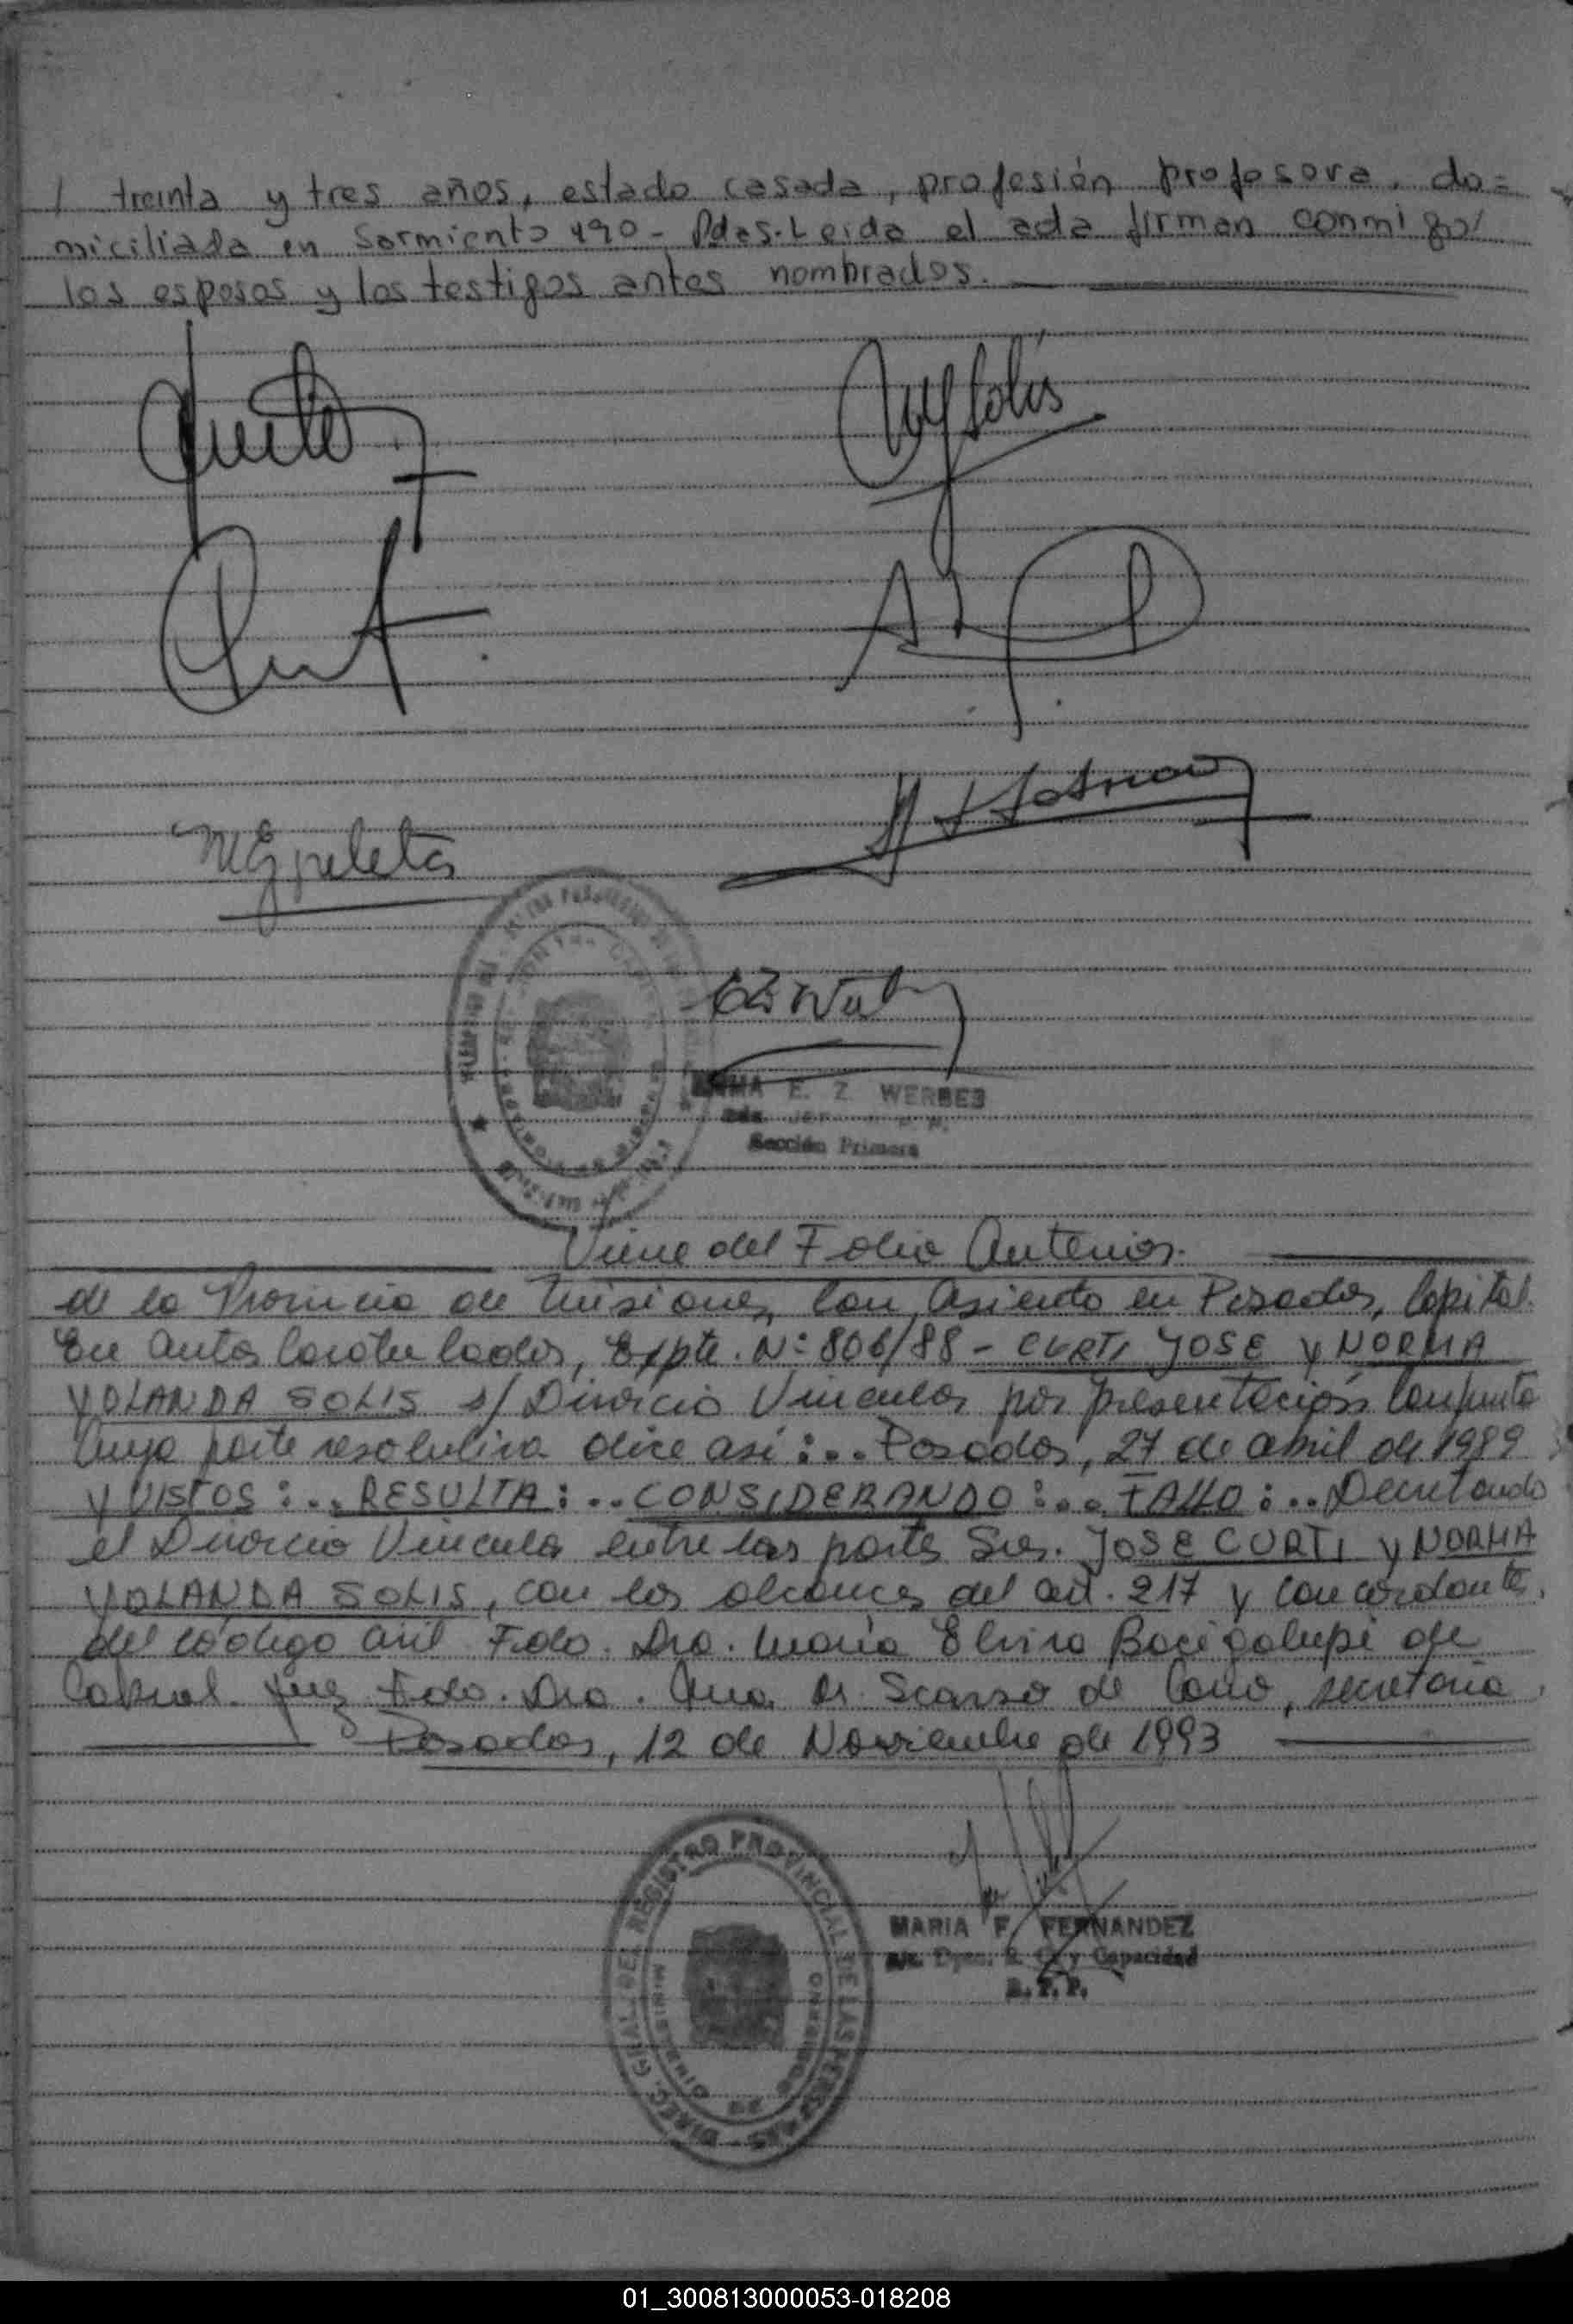 / treinta y tres años, estado casada, profesión profesora, do=
miciliada en Sarmiento 490- Pdas. Leida el acta firman conmigo/
los esposos y los testigos antes nombrados.
Solís
ME
E. Z. WERBES
Sección Primera
Viene del Folio Anterior.
de la Provincia de Misiones, con asiento en Posadas, Capital.
En autos caratulados, Expte. N: 806/88 - CURTI JOSE y NORMA
YOLANDA SOLIS s/ Divorcio Vincular por presentación conjunta
cuya parte resolutiva dice así:.. Posadas, 27 de abril de 1989
y VISTOS:.. RESULTA:.. CONSIDERANDO:... FALLO:.. Decretando
el Divorcio Vincular entre las partes Sres. JOSE CURTI y NORMA
YOLANDA SOLIS, con los alcances del art. 217 y concordantes.
del código civil Fdo. Dra. María Elvira Bacigalupi de
Cabral. Juez Fdo. Dra. Ana M. Scarso de, secretaria.
Posadas, 12 de Noviembre de 1993
DIREC. GRAL. DEL REGISTRO PROVINCIAL DE LAS PERSONAS
MARIA F. FERNANDEZ
y Capacidad
R. P. P.
01_300813000053-018208